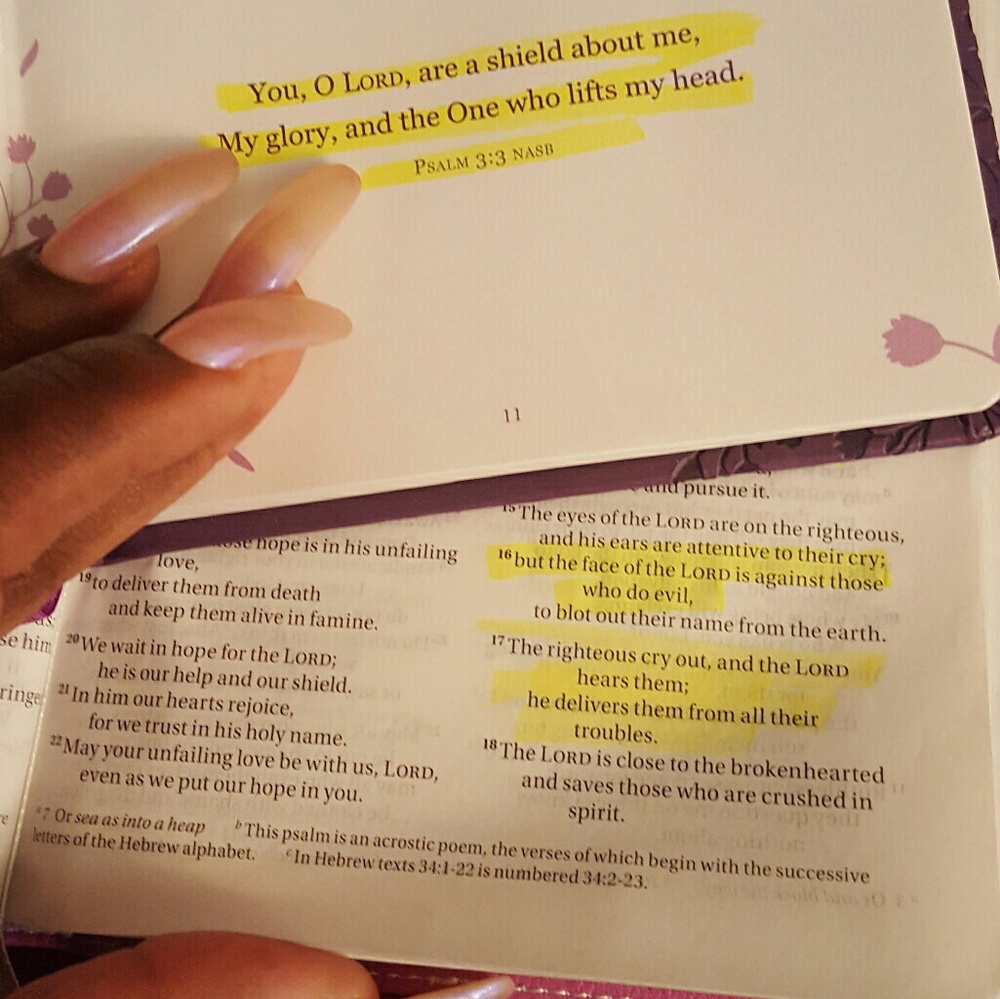 You, O LORD, are a shield about me,
My glory, and the One who lifts my head.
PSALM 3:3 NASB
11
hope is in his unfailing
love,
19to deliver them from death
and keep them alive in famine.
20We wait in hope for the LORD;
he is our help and our shield.
21In him our hearts rejoice,
for we trust in his holy name.
22May your unfailing love be with us, LORD,
even as we put our hope in you.
and pursue it.
15The eyes of the LORD are on the righteous,
and his ears are attentive to their cry;
16but the face of the LORD is against those
who do evil,
to blot out their name from the earth.
17The righteous cry out, and the LORD
hears them;
he delivers them from all their
troubles.
18The LORD is close to the brokenhearted
and saves those who are crushed in
spirit.
a7 Or sea as into a heap bThis psalm is an acrostic poem, the verses of which begin with the successive
letters of the Hebrew alphabet. cIn Hebrew texts 34:1-22 is numbered 34:2-23.